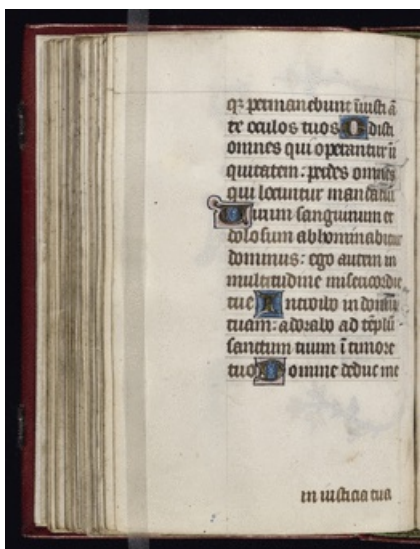 qz permanebunt iniusti ā
te oculos tuos Odisti
omnes qui operantur ī
quitatem: perdes omnes
qui locuntur mendatiū
Virum sanguinum et
dolosum abhominabitur
dominus: ego autem in
multitudine misericordie
tue Introibo in domum
tuam: adorabo ad tēplū
sanctum tuum ī timore
tuo Domine deduc me
in iusticia tua